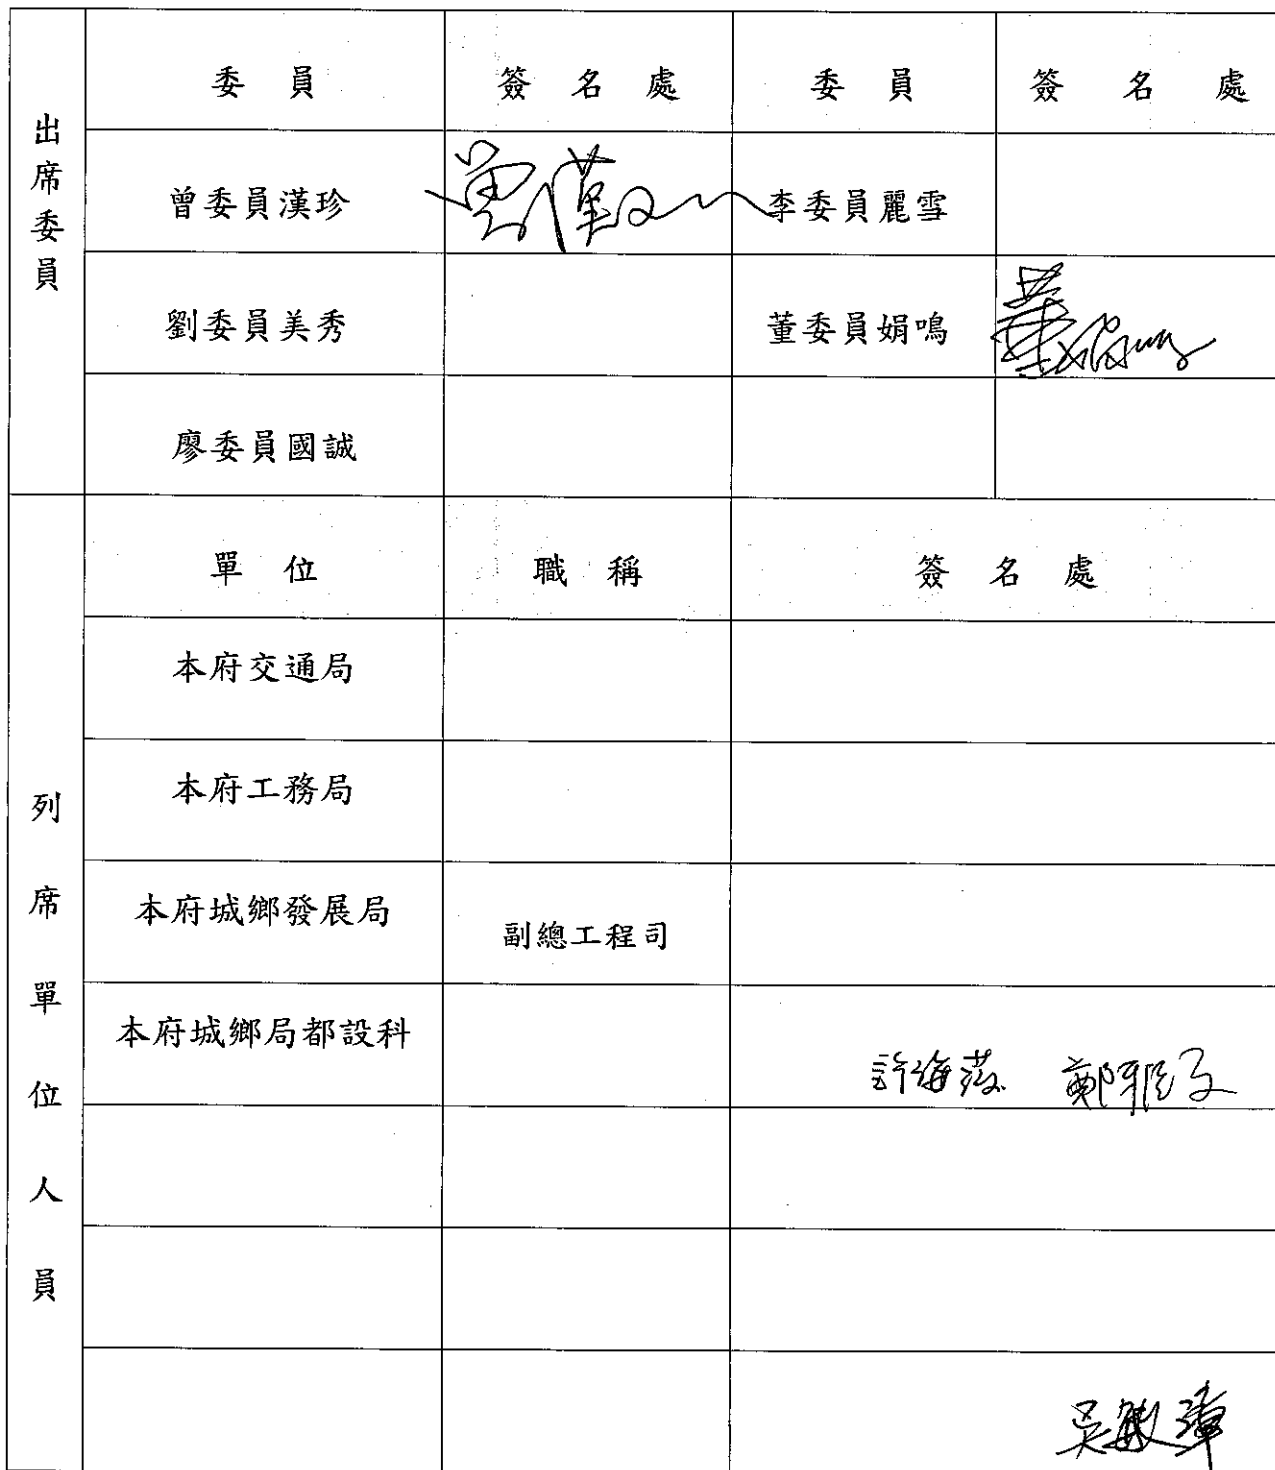 出席委員
委員 簽名處 委員 簽名處
曾委員漢珍 曾漢珍 李委員麗雪
劉委員美秀 董委員娟鳴 董娟鳴
廖委員國誠
列席單位人員
單位 職稱 簽名處
本府交通局
本府工務局
本府城鄉發展局 副總工程司
本府城鄉局都設科 許海 鄭雅文
吳敏